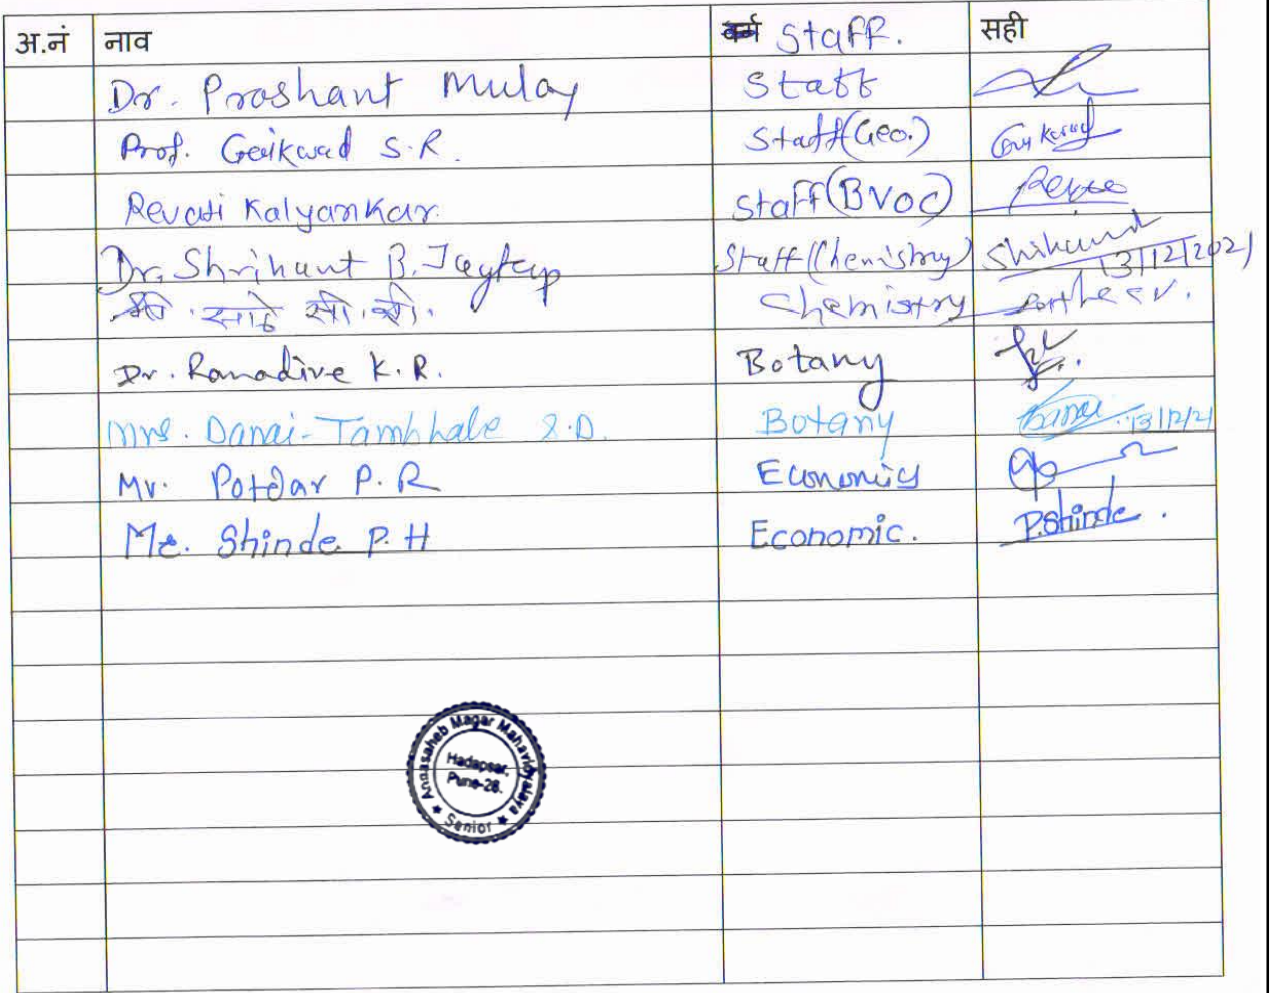 अ.नं नाव वर्ग Staff. सही
Dr. Prashant Mulay Staff
Prof. Gaikwad S.R. Staff(Geo.) Gaikwad
Revati Kalyankar. Staff(BVOC)
Dr. Shrihant B. Jagtap Staff(Chemistry) 13/12/2021
साठे सी. व्ही. Chemistry Sathe C V.
Dr. Ranadive K.R. Botany
Mrs. Danai-Tambhale S.D. Botany Danai 13/12/21
Mr. Potdar P.R Economics
Mr. Shinde P.H Economic. P.Shinde.
Annasaheb Magar Mahavidyalaya
Hadapsar,
Pune-28.
★ Senior ★